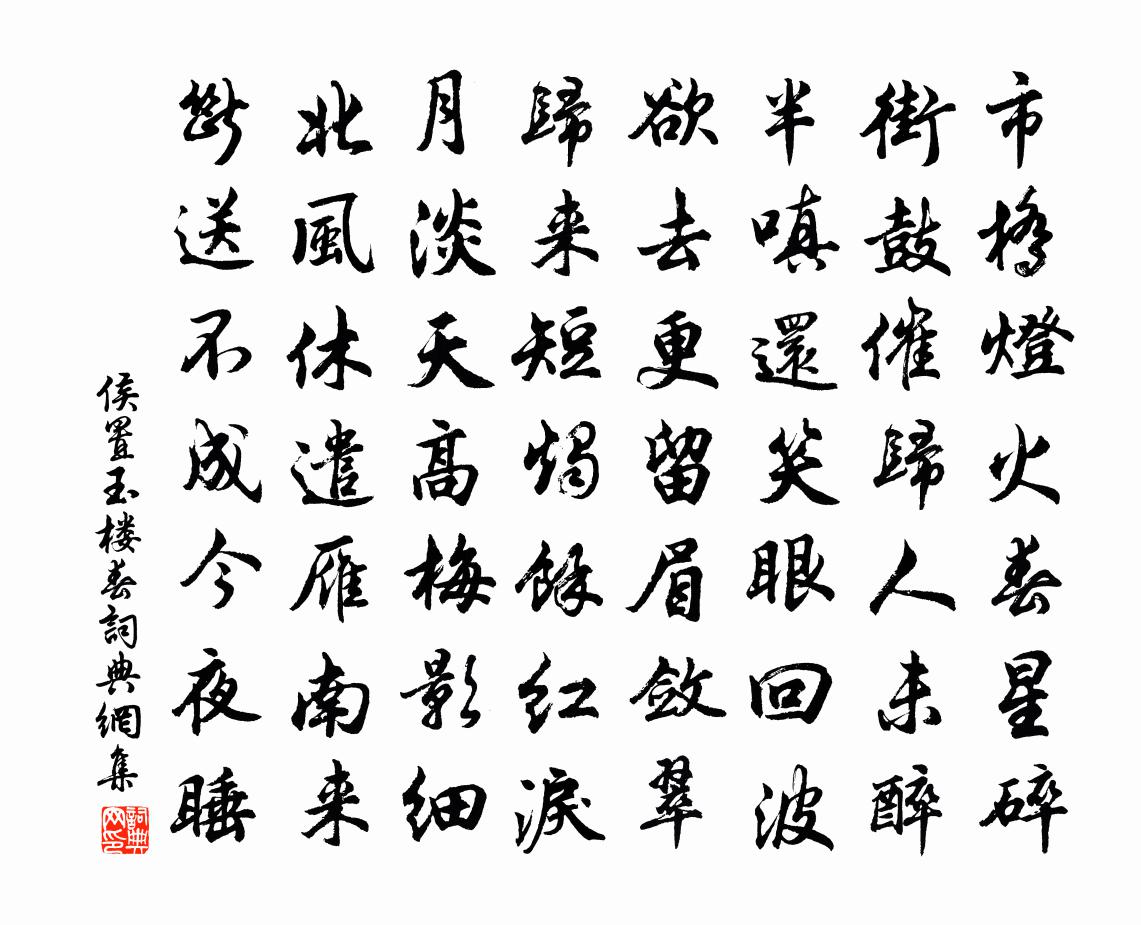 市橋燈火春星碎
街鼓催歸人未醉
半嗔還笑眼回波
欲去更留眉斂翠
歸来短燭餘红淚
月淡天高梅影细
北風休遣雁南来
斷送不成今夜睡
侯置玉楼春詞典網集
詞典網印